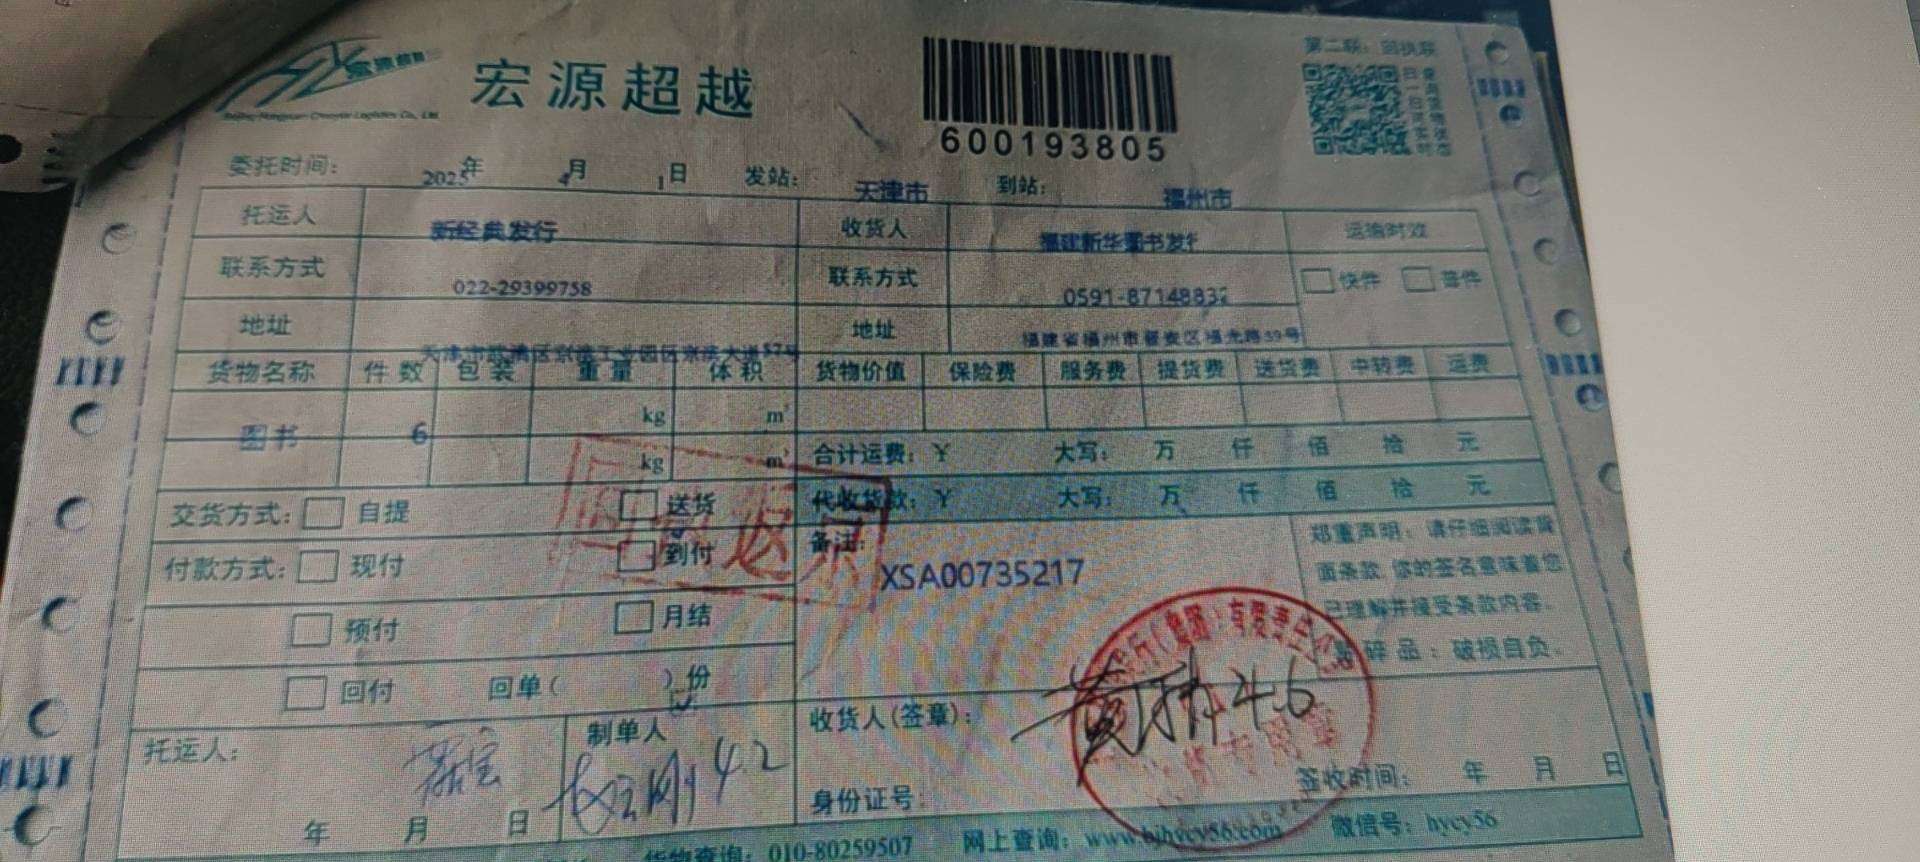 宏源超越
600193805
第二联：回执联
委托时间： 2025年 4月 1日 发站： 天津市 到站： 福州市
托运人 新经典发行 收货人 福建新华图书发行 运输时效
联系方式 022-29399758 联系方式 0591-87148832 快件 普件
地址 地址
货物名称 件数 包装 重量 体积 货物价值 保险费 服务费 提货费 送货费 中转费 运费
图书 6 kg m³
kg m³
合计运费：¥ 大写： 万 仟 佰 拾 元
代收货款：¥ 大写： 万 仟 佰 拾 元
交货方式： 自提 送货
付款方式： 现付 到付
预付 月结
回付 回单( )份
备注：
XSA00735217
郑重声明：请仔细阅读背
面条款，您的签名意味着您
已理解并接受条款内容。
易碎品：破损自负。
托运人：
年 月 日
制单人
4.2
收货人(签章)：
4.6
身份证号：
签收时间： 年 月 日
货物查询：010-80259507 网上查询：www.bjhycy56.com 微信号：hycy56